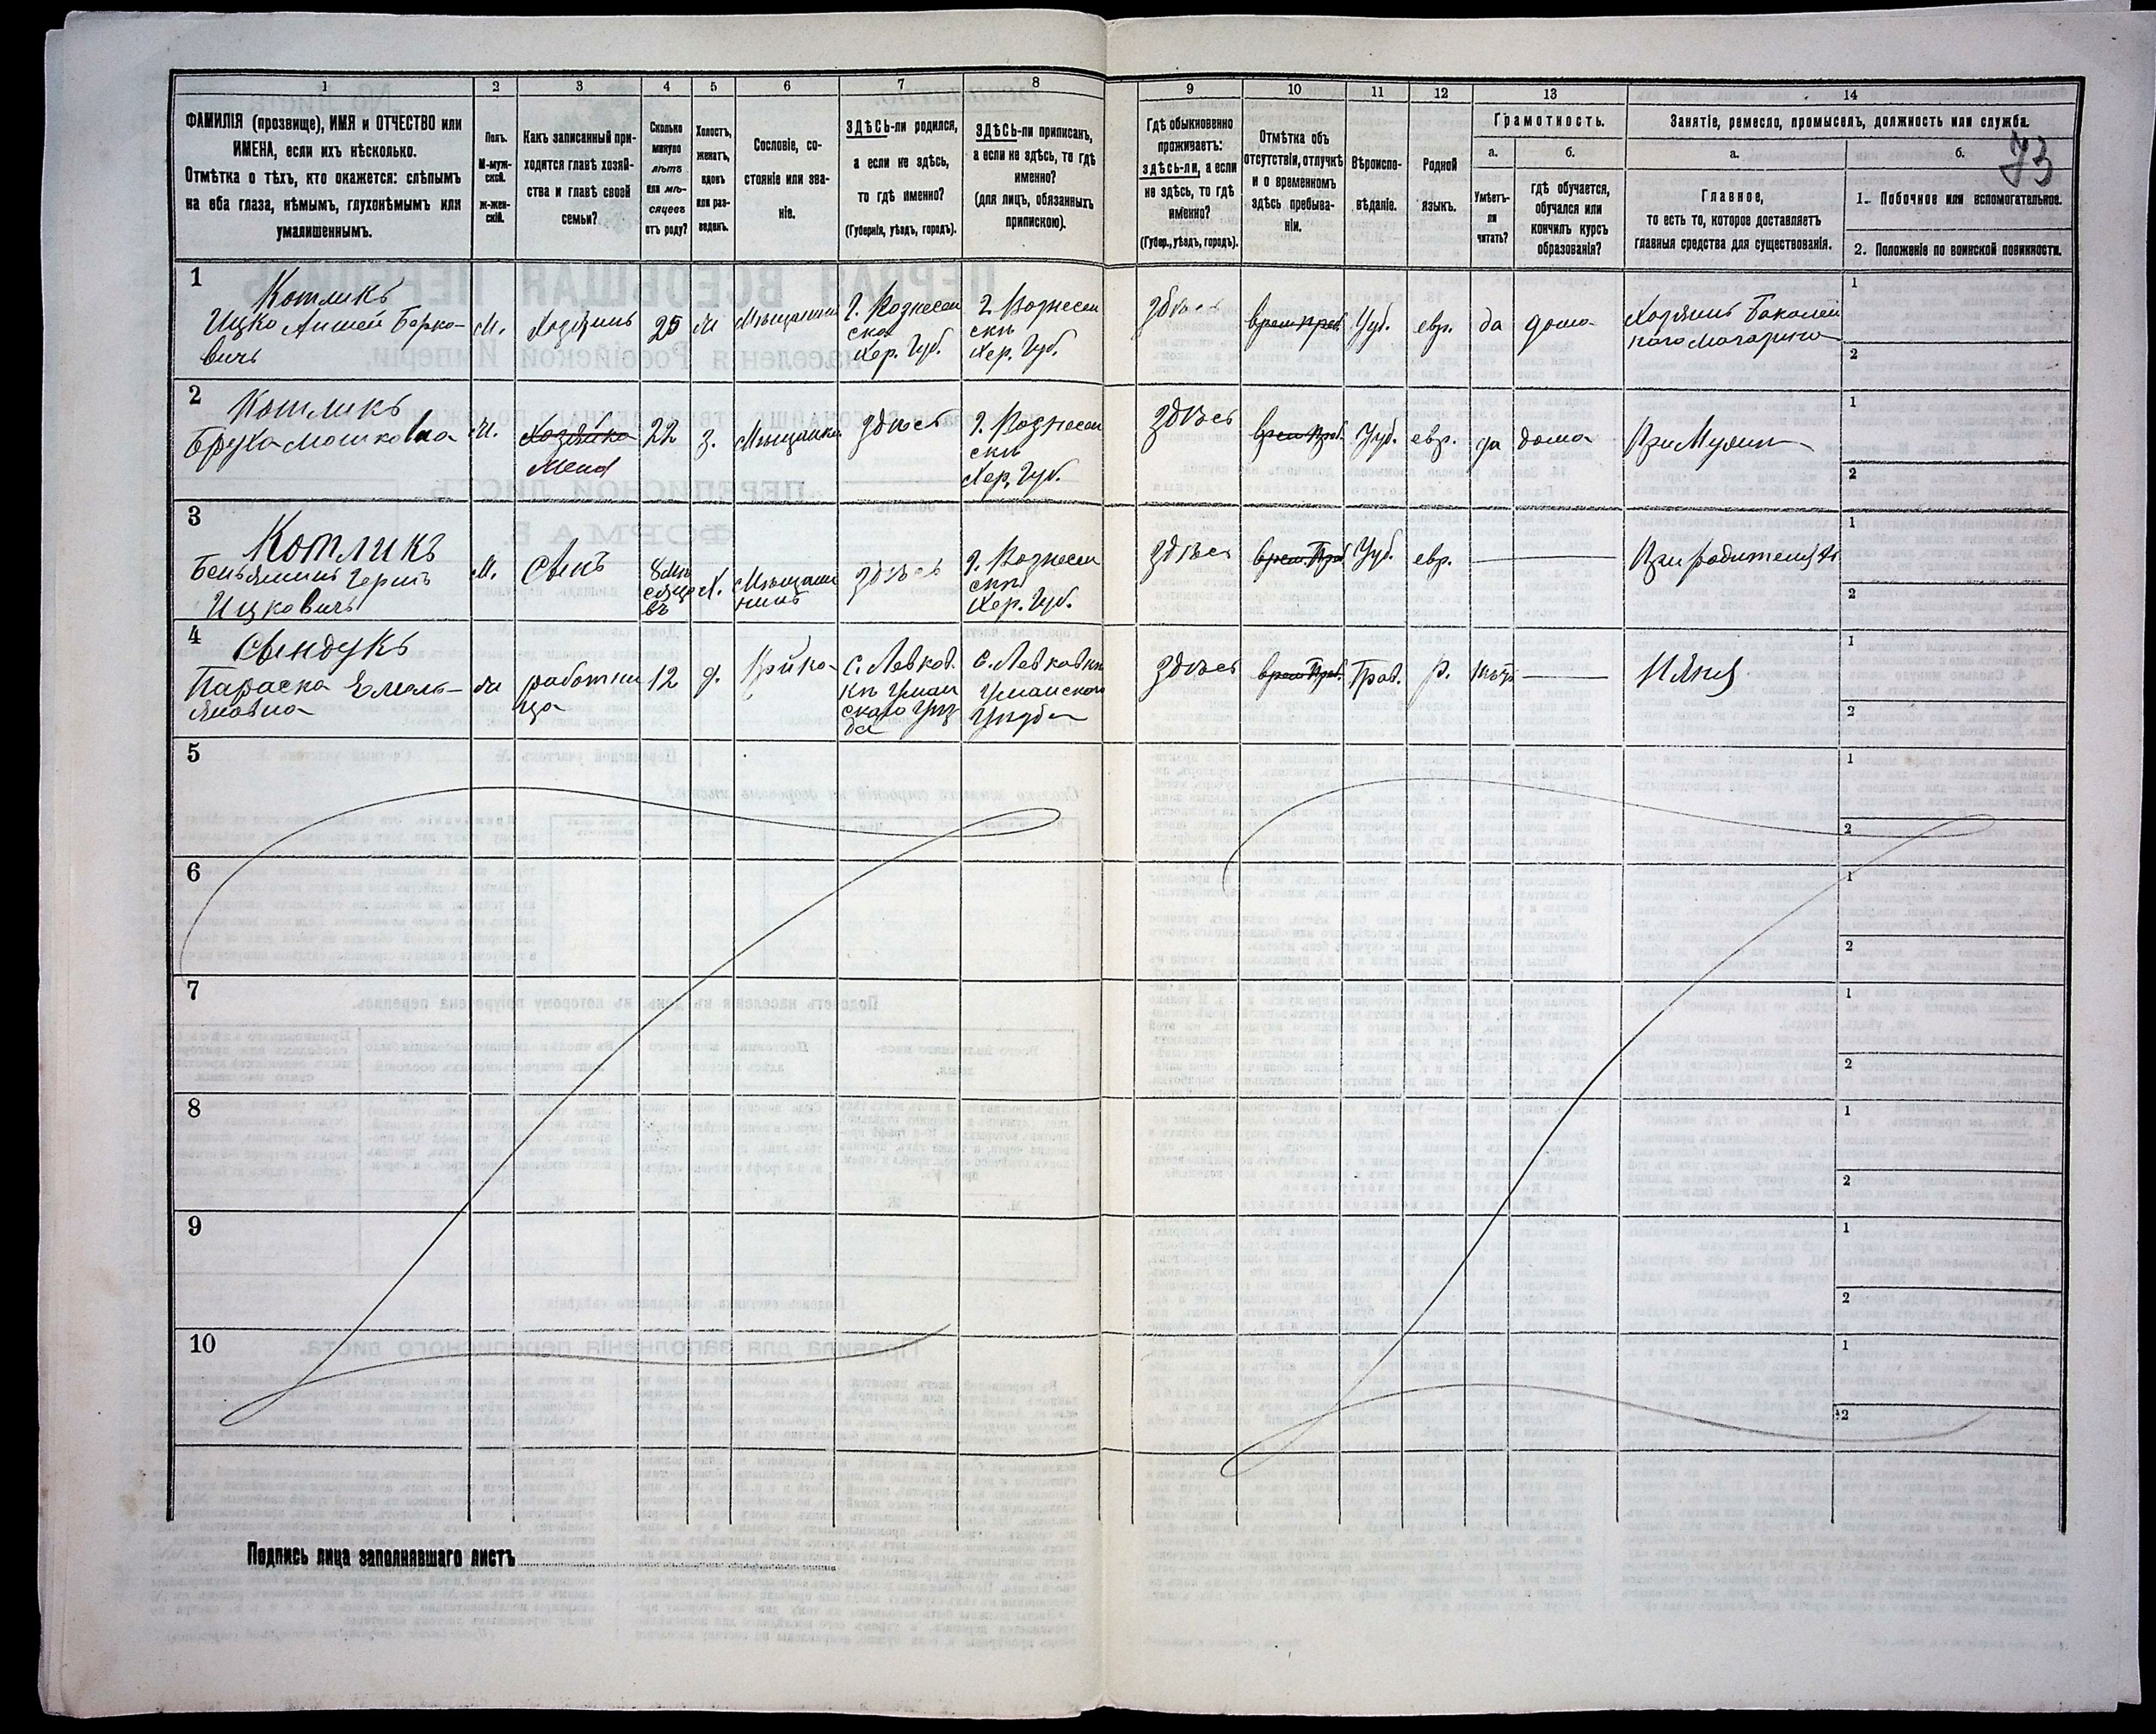 1 2 3 4 5 6 7 8 9 10 11 12 13 14
ФАМИЛІЯ (прозвище), ИМЯ и ОТЧЕСТВО или
ИМЕНА, если ихъ нѣсколько.
Отмѣтка о тѣхъ, кто окажется: слѣпымъ
на оба глаза, нѣмымъ, глухонѣмымъ или
умалишеннымъ.
Полъ.
М-муж-
ской.
ж-жен-
скій.
Какъ записанный при-
ходится главѣ хозяй-
ства и главѣ своей
семьи?
Сколько
минуло
лѣтъ
или мѣ-
сяцевъ
отъ роду?
Холостъ,
женатъ,
вдовъ
или раз-
веденъ.
Сословіе, со-
стояніе или зва-
ніе.
ЗДѢСЬ-ли родился,
а если не здѣсь,
то гдѣ именно?
(Губернія, уѣздъ, городъ).
ЗДѢСЬ-ли приписанъ,
а если не здѣсь, то гдѣ
именно?
(для лицъ, обязанныхъ
припискою).
Гдѣ обыкновенно
проживаетъ:
здѣсь-ли, а если
не здѣсь, то гдѣ
именно?
(Губер., уѣздъ, городъ).
Отмѣтка объ
отсутствіи, отлучкѣ
и о временномъ
здѣсь пребыва-
ніи.
Вѣроиспо-
вѣданіе.
Родной
языкъ.
Грамотность.
а.
Умѣетъ-
ли
читать?
б.
гдѣ обучается,
обучался или
кончилъ курсъ
образованія?
Занятіе, ремесло, промыселъ, должность или служба.
а.
Главное,
то есть то, которое доставляетъ
главныя средства для существованія.
б.
73
1. Побочное или вспомогательное.
2. Положеніе по воинской повинности.
1
Котликъ
Ицко Аншей Берко-
вичъ
м.
Хозяинъ
25
Мѣщанинъ
Г. Вознесен
ска
Хер. Губ.
Г. Вознесен
скъ
Хер. Губ.
здѣсь
врем. преб.
Іуд.
евр.
да
дома
Хозяинъ Бакалей
наго
1
2
2
Котликъ
Бруха Мошковна
Хозяйка
жена
22
з.
Мѣщанка
здѣсь
Г. Вознесен
скъ
Хер. Губ.
здѣсь
врем. преб.
Іуд.
евр.
да
дома
При Мужѣ
1
2
3
Котликъ
Беньяминъ Гершъ
Ицковичъ
м.
Сынъ
8 мѣ
сяце
въ
Х.
Мѣщани
нинъ
здѣсь
Г. Вознесен
скъ
Хер. Губ.
здѣсь
врем. Преб.
Іуд.
евр.
При родителяхъ
1
2
4
Свиндукъ
Параска Емель-
яновна
работни
ца
12
д.
с. Левков.
ки Уман
скаго Уѣз
да
с. Левковки
Уманскаго
Уѣзда
здѣсь
врем. Преб.
Прав.
р.
нѣтъ
Няня
1
2
5
1
2
6
1
2
7
1
2
8
1
2
9
1
2
10
1
2
Подпись лица заполнявшаго листъ